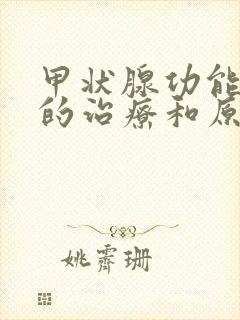 甲状腺功能
的治疗和原
姚霁珊